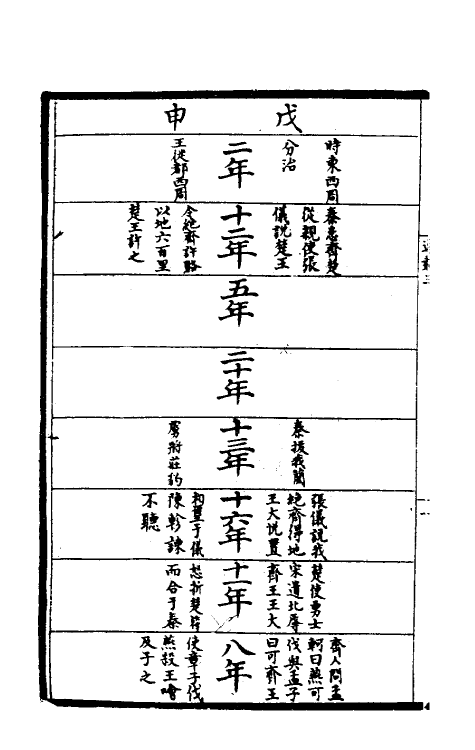 戊申
時東西周
分治
二年
王徙都西周
秦患齊楚
從親使張
儀說楚王
十二年
令絶齊許賂
以地六百里
楚王許之
五年
二十年
秦拔我藺
十三年
虜將莊豹
張儀說我
絶齊得地
王大悅置
十六年
相璽于儀
陳軫諫
不聽
楚使勇士
宋遺北辱
齊王王大
十一年
怒折楚符
而合于秦
齊人問孟
軻曰燕可
伐與孟子
曰可齊王
八年
使章子伐
燕殺王噲
及子之